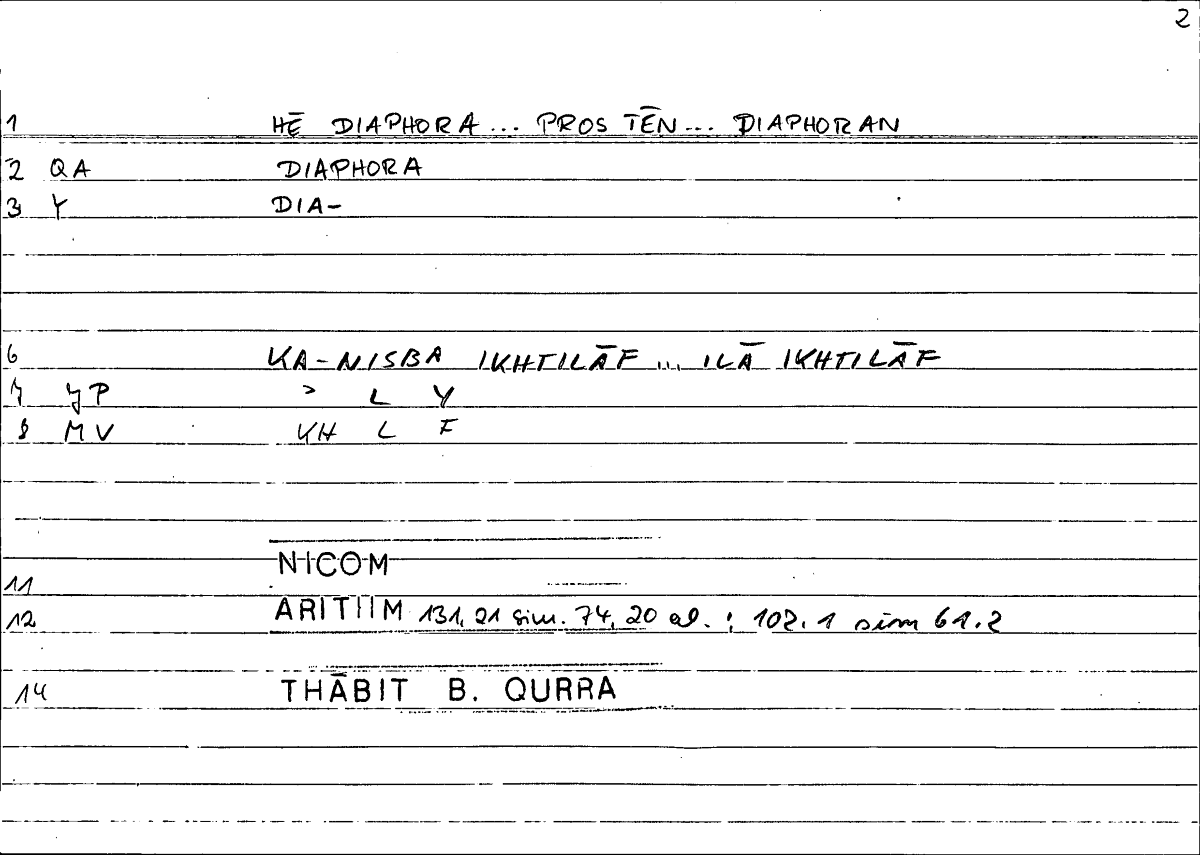 2
1 HĒ DIAPHORA ... PROS TĒN ... DIAPHORAN
2 QA DIAPHORA
3 Y DIA-
6 KA-NISBA IKHTILĀF ... ILĀ IKHTILĀF
7 JP > L Y
8 MV KH L F
NICOM
11
12 ARITIIM 131,21 sim. 74,20 al. ; 102.1 sim 61.2
14 THĀBIT B. QURRA